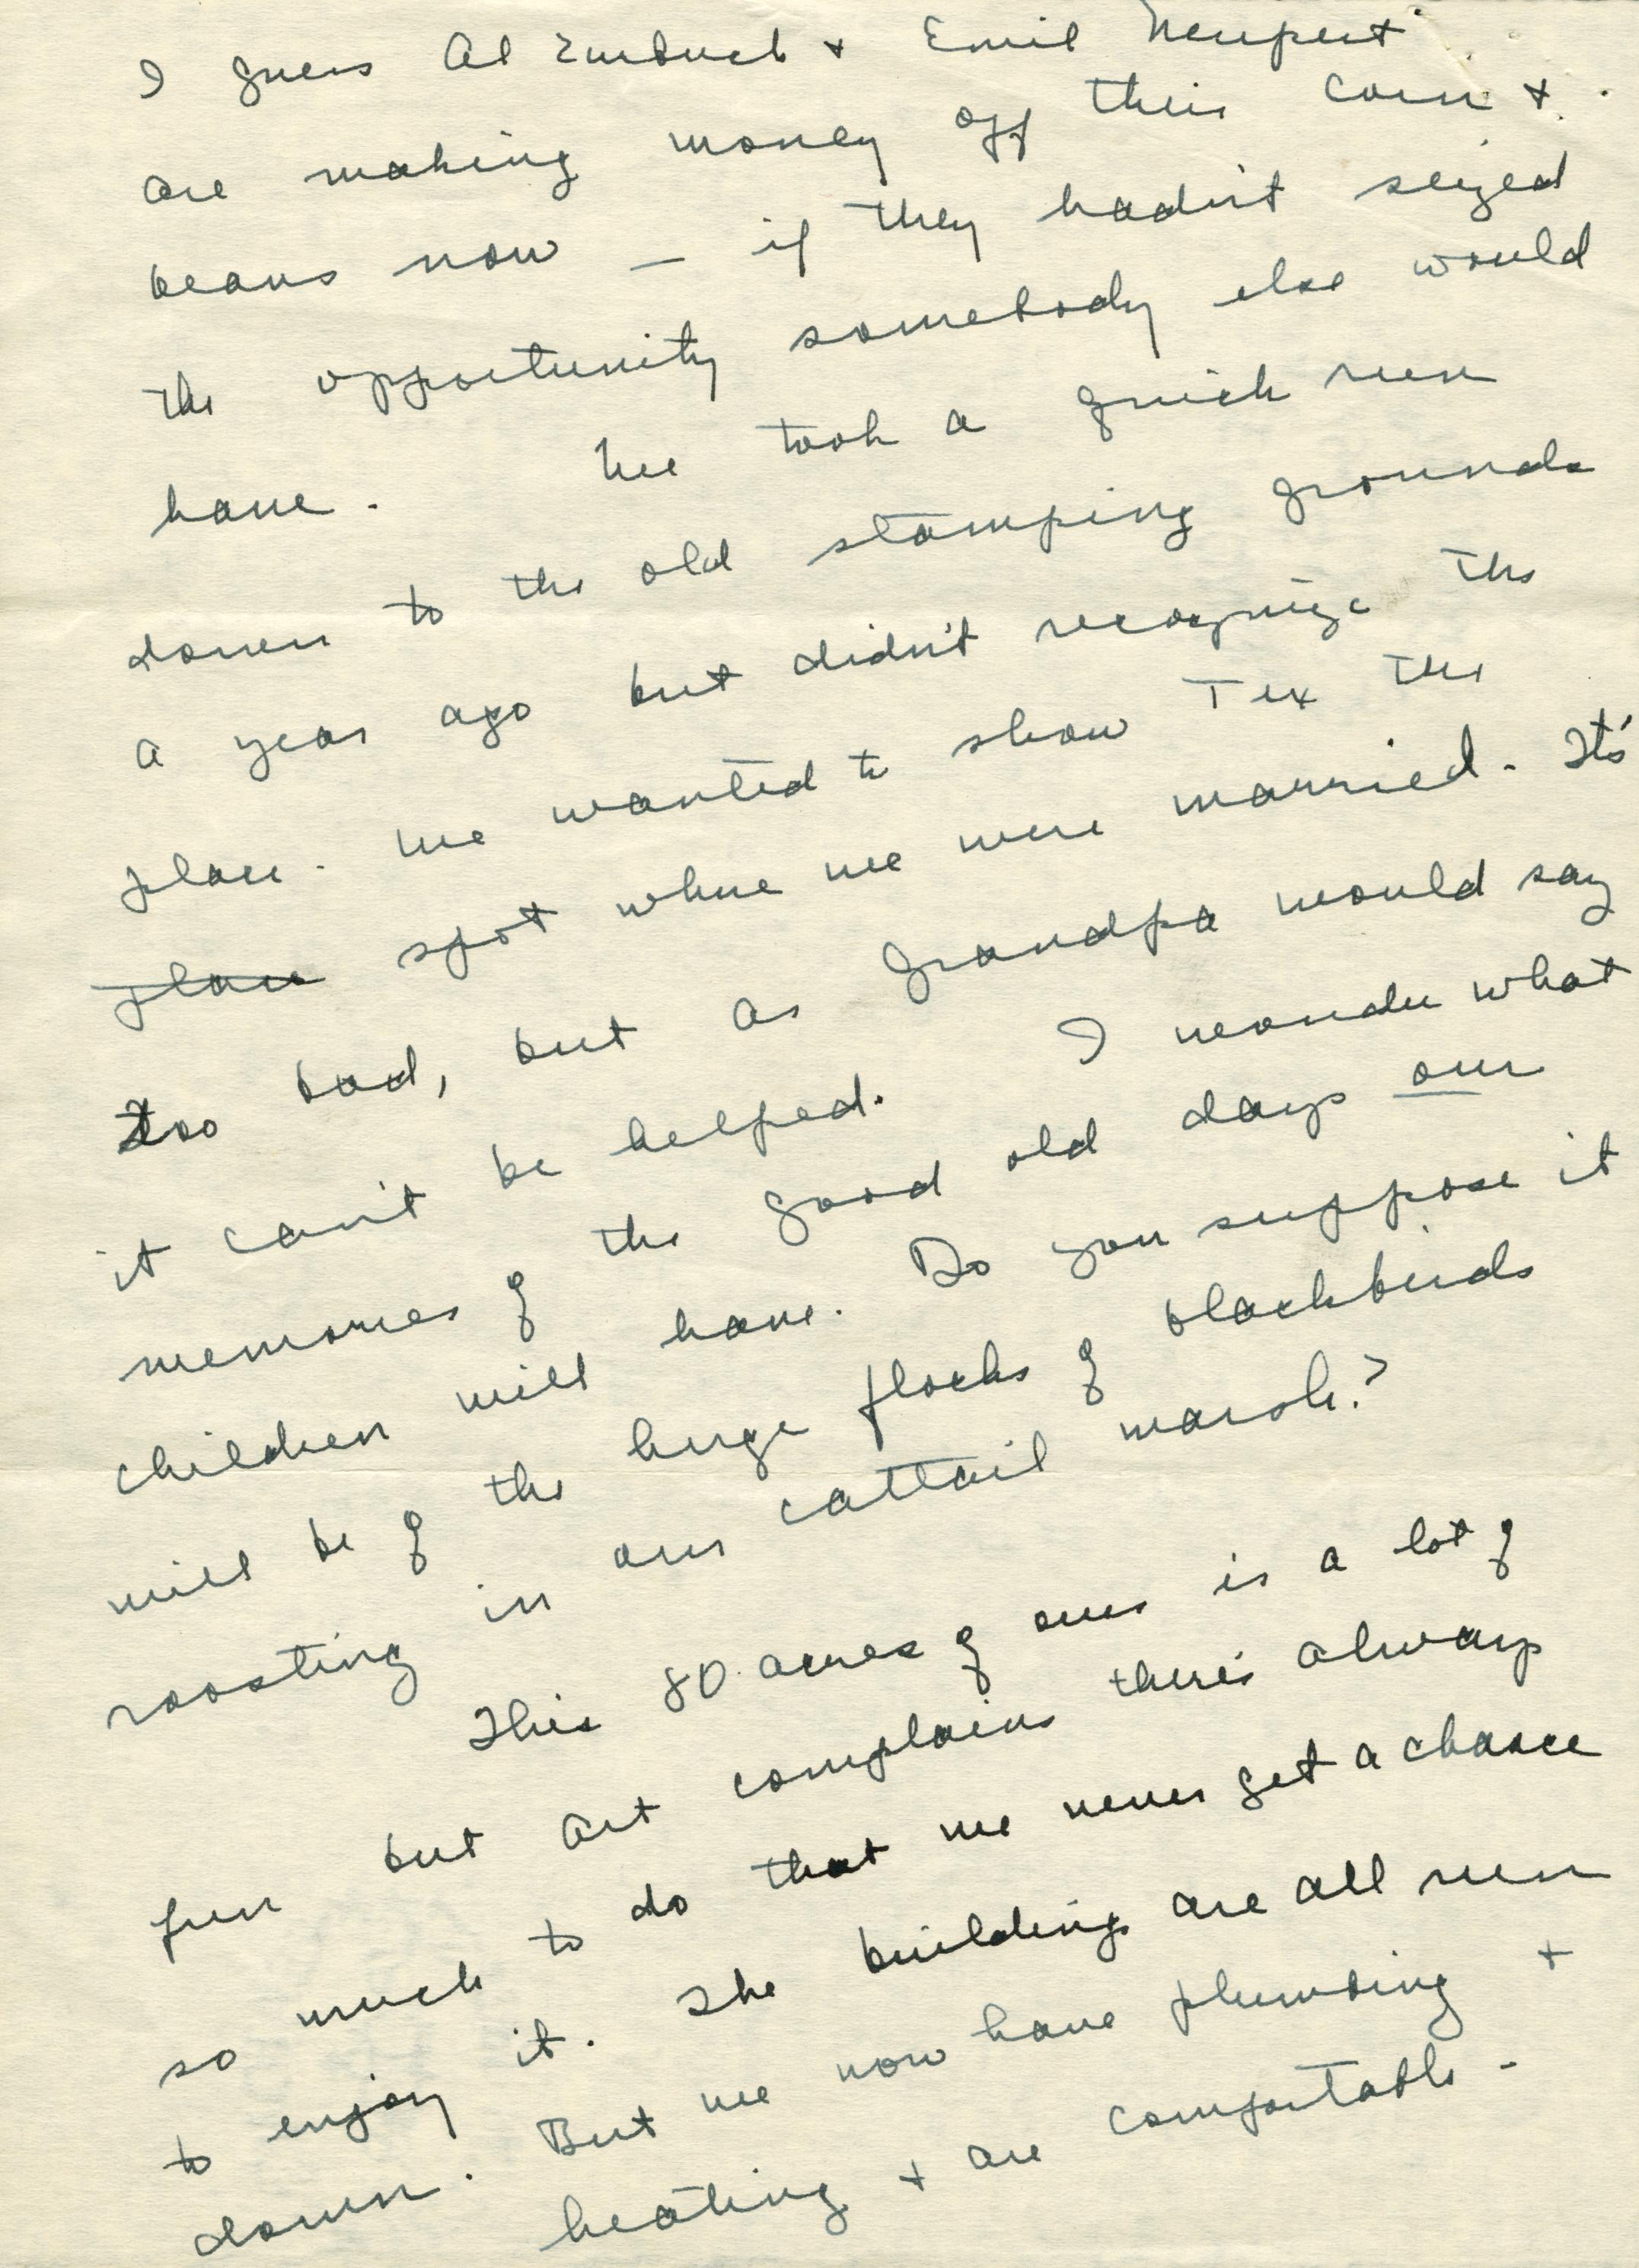 I guess Al & Emil Neupert
are making money off their corn &
beans now — if they hadn't seized
the opportunity somebody else would
have. We took a quick run
down to the old stamping grounds
a year ago but didn't recognize the
place. We wanted to show Tex the
place spot where we were married. It's
too bad, but as Grandpa would say
it can't be helped. I wonder what
memories of the good old days our
children will have. Do you suppose it
will be of the huge flocks of blackbirds
roosting in our cattail marsh?
This 80 acres of ours is a lot of
fun but Art complains there's always
so much to do that we never get a chance
to enjoy it. The buildings are all run
down. But we now have plumbing &
heating & are comfortable -